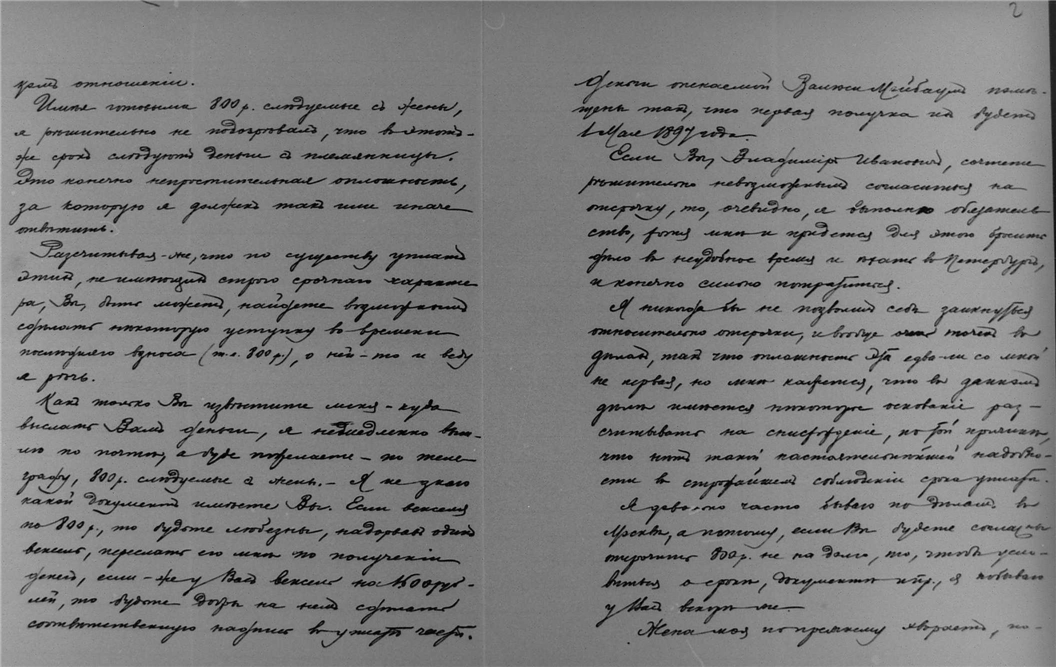 2
комъ отношеніи.
Имѣя готовыми 800 р. слѣдуемые съ жены,
я рѣшительно не подозрѣвалъ, что въ этотъ-
же срокъ слѣдуютъ деньги съ племянницы.
Это конечно непростительная оплошность,
за которую я долженъ такъ или иначе
отвѣтить.
Разсчитывая-же, что по существу уплатъ
этихъ, не имѣющихъ строго срочнаго характе
ра, Вы, быть можетъ, найдете возможнымъ
сдѣлать нѣкоторую уступку во времени
послѣдняго взноса (т.е. 800 р.), о ней-то и веду
я рѣчь.
Какъ только Вы извѣстите меня – куда
выслать Вамъ деньги, я немедленно выш-
лю по почтѣ, а буде пожелаете – по теле
графу, 800 р. слѣдуемые съ жены. – Я не знаю
какой документъ имѣете Вы. Если векселя
по 800 р., то будьте любезны, надорвавъ одинъ
вексель, переслать его мнѣ по полученіи
денегъ, если-же у Васъ вексель на 1600 руб-
лей, то будьте добры на немъ сдѣлать
соотвѣтственную надпись въ уплатѣ части.
Деньги опекаемой Валики Мейбаумъ помѣ-
щены такъ, что первая получка ихъ будетъ
1 Мая 1897 года.
Если Вы, Владиміръ Ивановичъ, сочтете
рѣшительно невозможнымъ согласиться на
отсрочку, то, очевидно, я выполню обязатель
ство, хотя мнѣ и придется для этого бросить
дѣло въ неудобное время и ѣхать въ Петербургъ,
и конечно сильно потратиться.
Я никогда бы не позволилъ себѣ заикнуться
относительно отсрочки, и вообще точенъ въ
дѣлахъ, такъ что оплошность эта едва-ли со мной
не первая, но мнѣ кажется, что въ данномъ
дѣлѣ имѣется нѣкоторое основаніе раз-
считывать на снисхожденіе, по той причинѣ,
что нѣтъ такой настоятельнѣйшей надобно-
сти въ строжайшемъ соблюденіи срока уплаты.
Я довольно часто бываю по дѣламъ въ
Москвѣ, а потому, если Вы будете согласны
отсрочить 800 р. не на долго, то, чтобы усло-
виться о срокѣ, документѣ и пр., я побываю
у Васъ вскорѣ же.
Жена моя по прежнему хвораетъ, по-